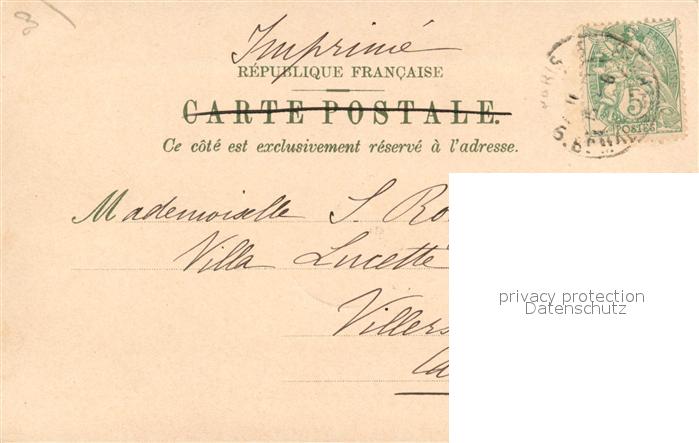 3
Imprimé
RÉPUBLIQUE FRANÇAISE
CARTE POSTALE.
Ce côté est exclusivement réservé à l'adresse.
5
POSTES
PARIS
Mademoiselle S. Ro
Villa Lucette
Villers
Ca
privacy protection
Datenschutz